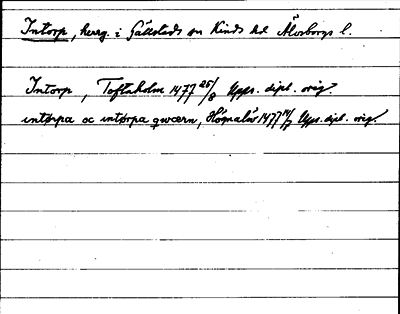 Intorp, herrg. i Gällstads sn Kinds hd Älvsborgs l.
Intorp, Toftaholm 1477 26/8 Upps. dipl. orig.
intørpa oc intørpa qwærn, 1477 Upps. dipl. orig.